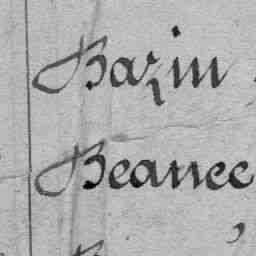 Bazin
Beanee